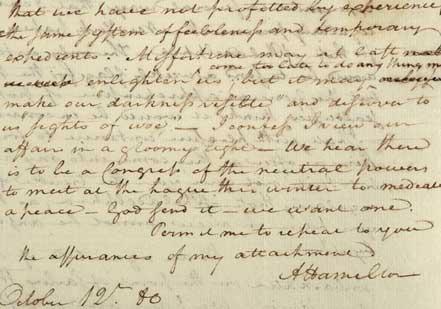 that we have not profitted by experience
the same system of feebleness and temporary
expedients. Misfortune may at last
come too late to do any thing
enlighten us; but it may
make our "darkness visible" and discover to
us sights of woe" — I confess I view our
affair in a gloomy light — We hear there
is to be a Congress of the neutral powers
to meet at the hague this winter to mediate
a peace — God send it — we want one.
Permit me to repeat to you
the assurances of my attachment
AHamilton
October 12th. 80